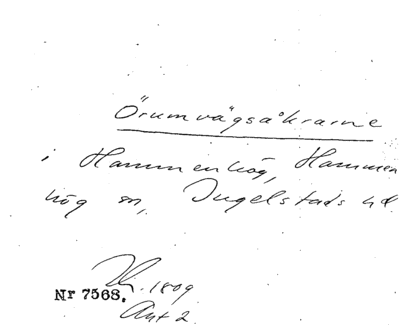 Örumvägsåkrarne
i Hammenhög, Hammen
hög sn, Ingelstads hd
1809
Nr 7568.
Akt 2